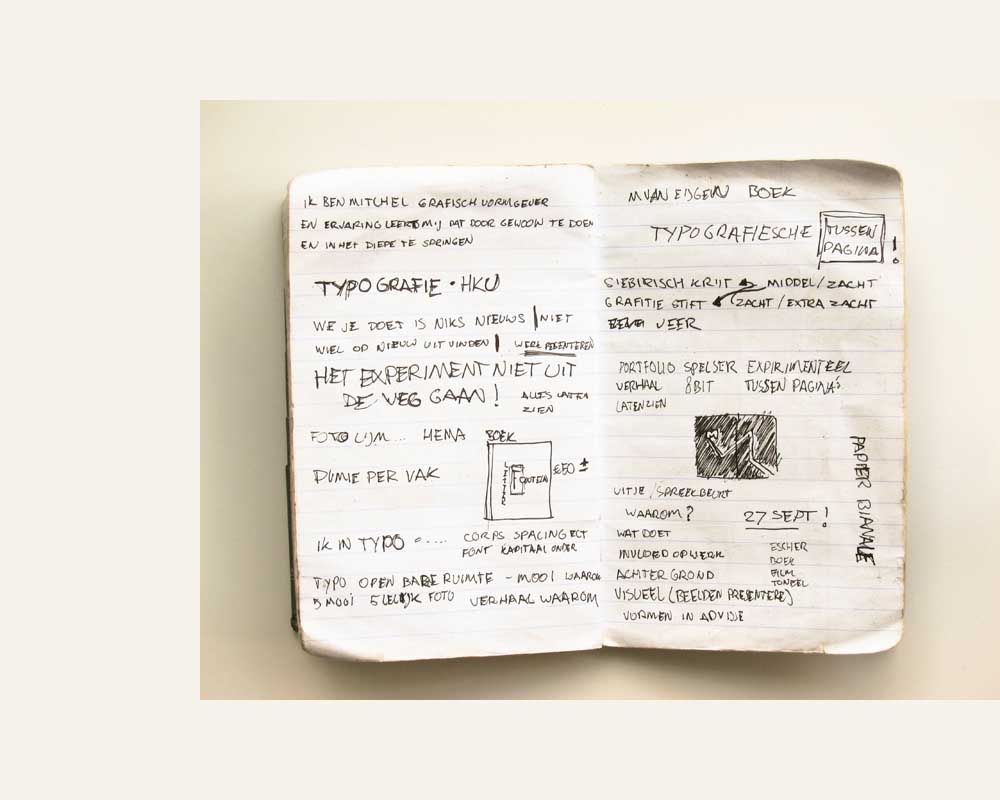 IK BEN MITCHEL GRAFISCH VORMGEVER
EN ERVARING LEERT MIJ DAT DOOR GEWOON TE DOEN
EN IN HET DIEPE TE SPRINGEN
TYPOGRAFIE · HKU
WE JE DOET IS NIKS NIEUWS | NIET
WIEL OP NIEUW UITVINDEN |
HET EXPERIMENT NIET UIT
DE WEG GAAN!
ALLES LATEN
ZIEN
FOTO LIJM... HEMA
BOEK
LETTER
FONTEIN
€50 ±
DUMIE PER VAK
IK IN TYPO
CORPS SPACING ECT
FONT KAPITAAL ONDER
TYPO OPENBARE RUIMTE - MOOI WAAROM
5 MOOI 5 LELIJK FOTO VERHAAL WAAROM
BOEK
TYPOGRAFIESCHE
TUSSEN
PAGINA
!
SIEBIRISCH KRIJT MIDDEL/ZACHT
GRAFITIE STIFT ZACHT / EXTRA ZACHT
VEER
PORTFOLIO SPELSER EXPIRIMENTEEL
VERHAAL 8BIT TUSSEN PAGINA'S
LATEN ZIEN
UITJE / SPREEKBEURT
WAAROM?
27 SEPT!
WAT DOET
INVLOED OP WERK
ACHTER GROND
VISUEEL (BEELDEN PRESENTERE)
VORMEN IN ADVISJE
ESCHER
BOEK
FILM
TONEEL
PAPIER BIANALE